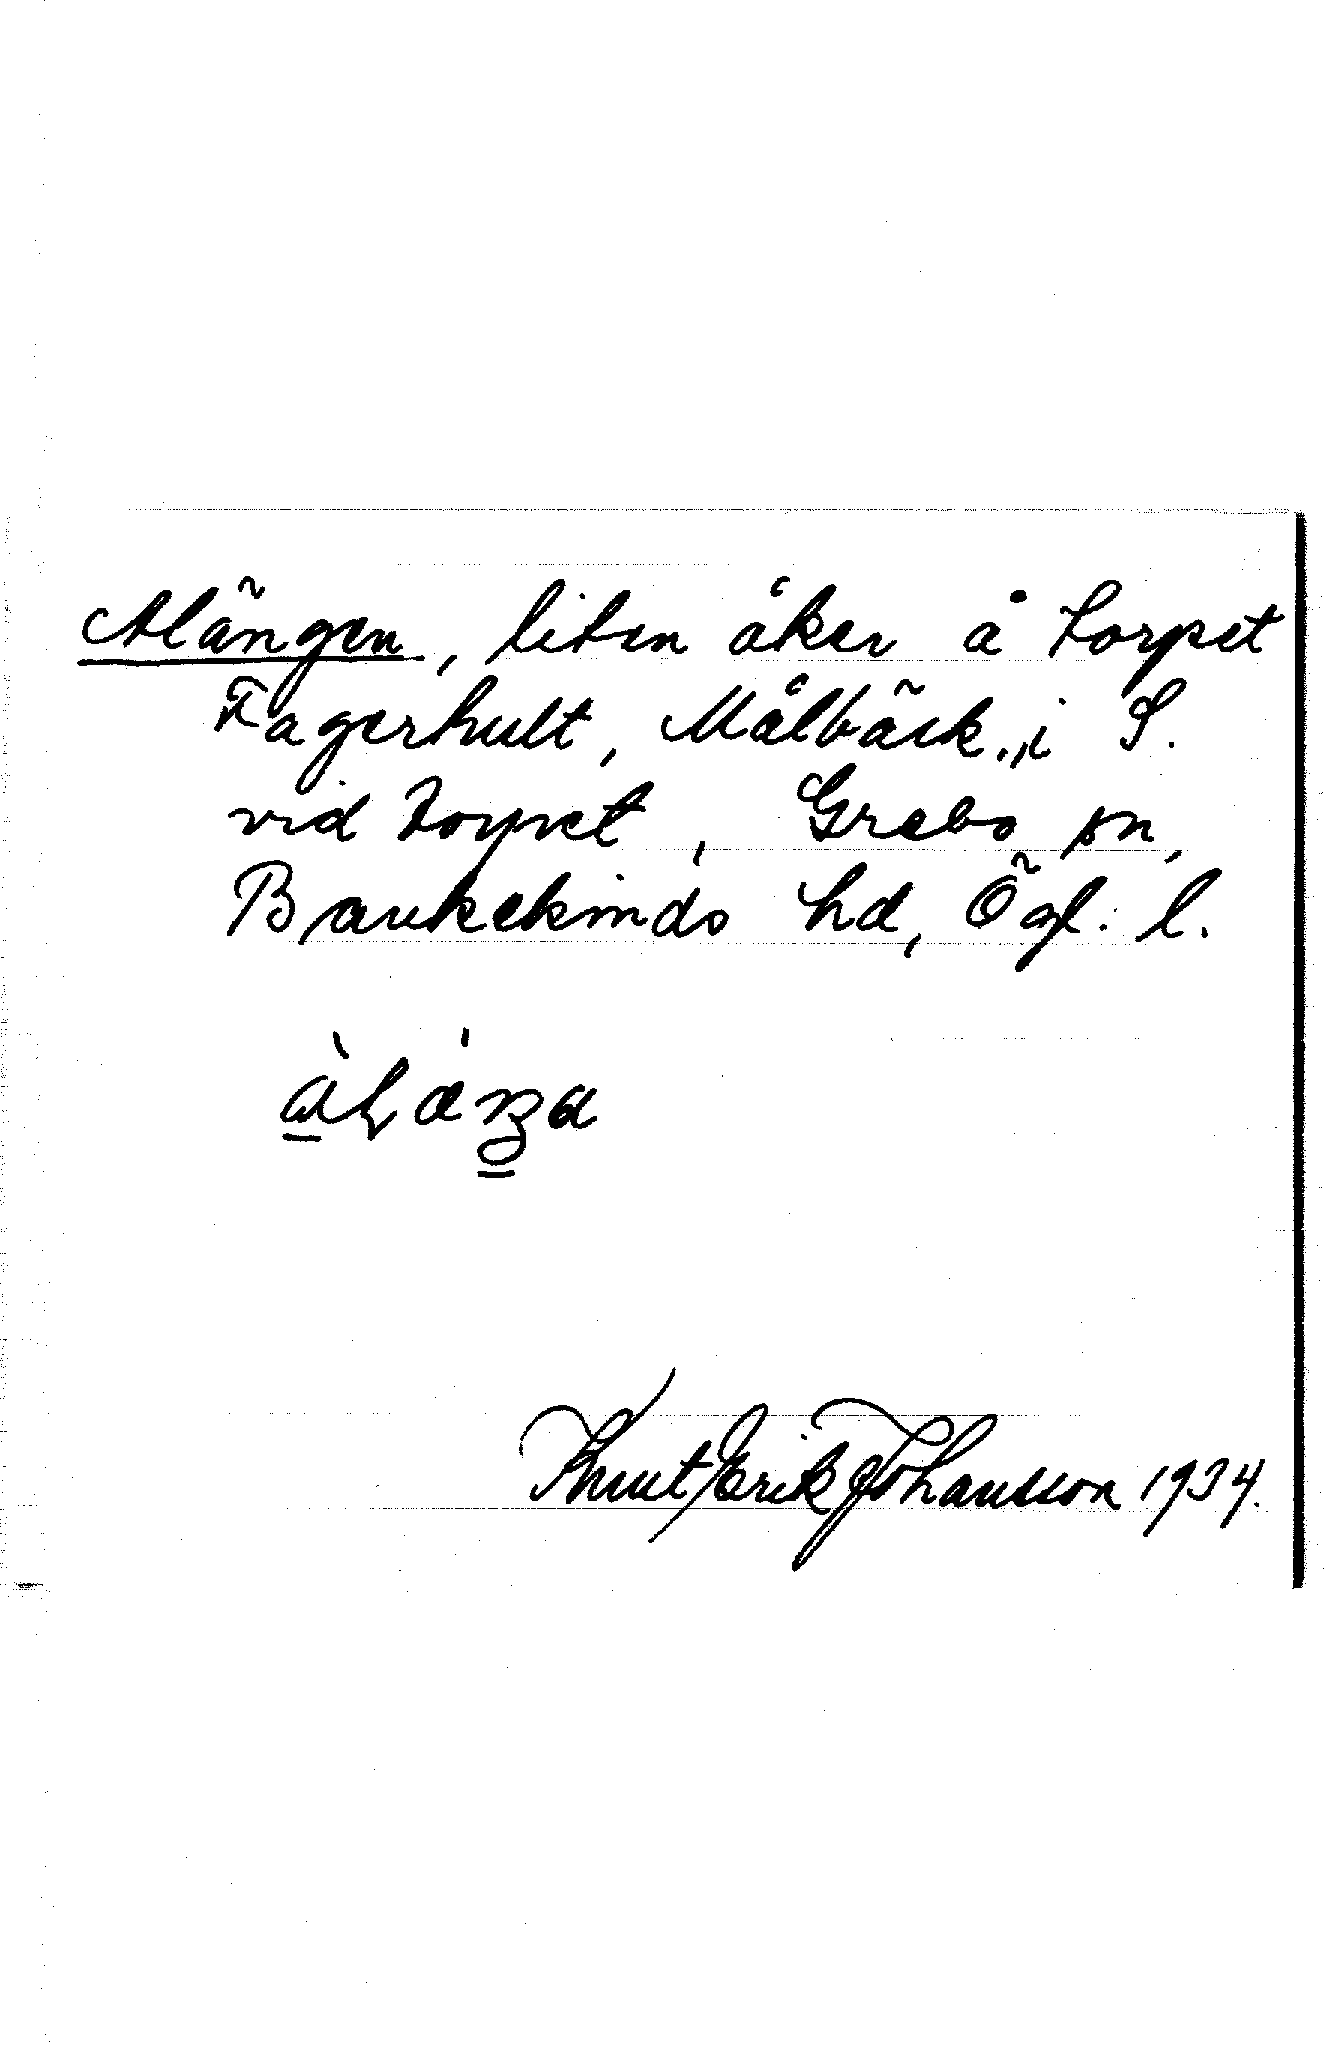 Alängen, liten åker å torpet
Fagerhult, Målbäck, i S.
vid torpet, Grebo sn,
Bankekinds hd, Ögl. l.
Knut Erik Johansson 1934.